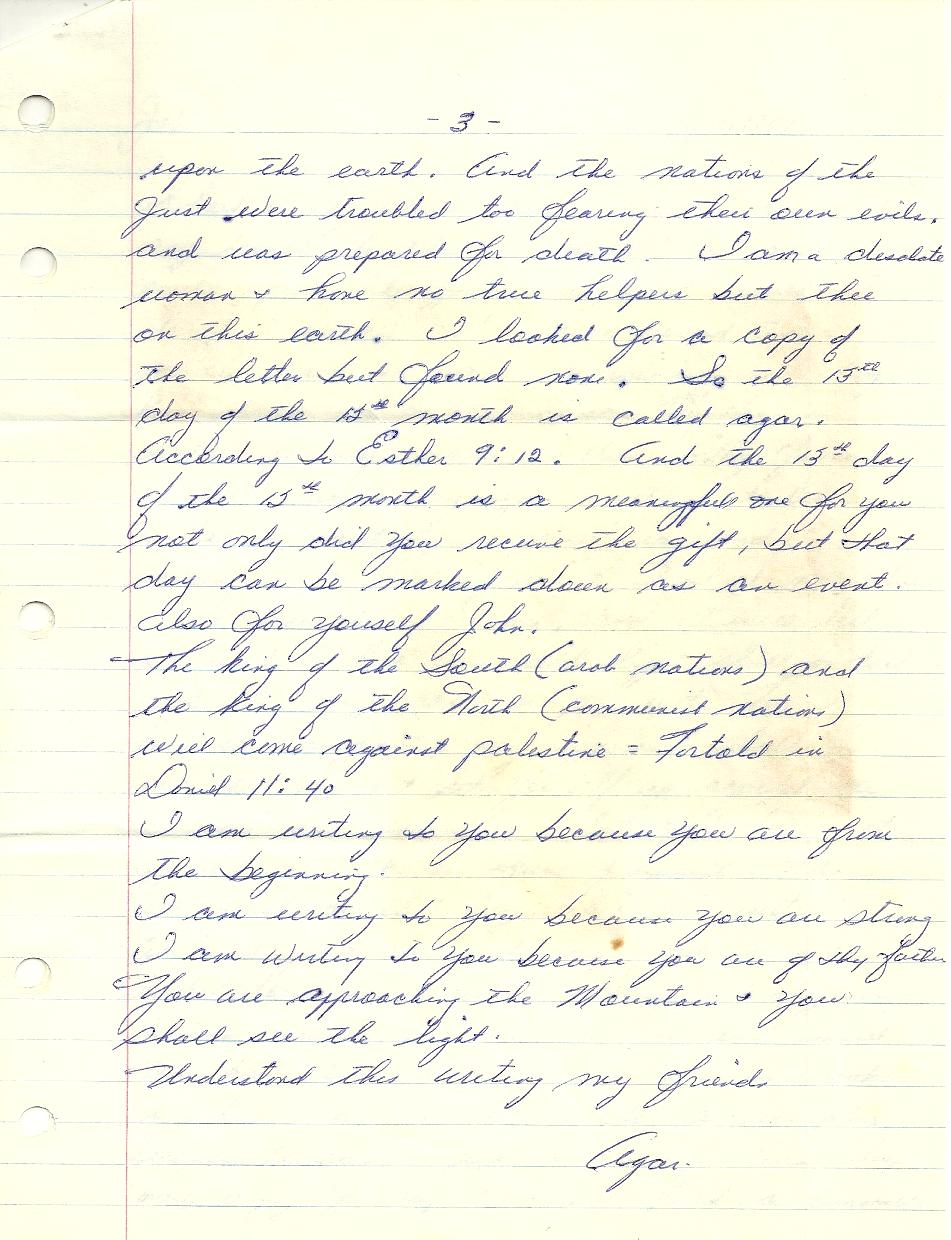 - 3 -
upon the earth. And the nations of the
Just were troubled too fearing their own evils.
and was prepared for death. I am a desolate
woman & have no true helpers but thee
on this earth. I looked for a copy of
the letter but found none. So the 13th
day of the 12th month is called agar.
According to Esther 9:12. And the 13th day
of the 12th month is a meaningful one for you
not only did you receive the gift, but that
day can be marked down as an event.
also for yourself John.
The king of the South (arab nations) and
the king of the North (communist nations)
will come against palestine = Fortold in
Daniel 11:40
I am writing to you because you are from
the beginning.
I am writing to you because you are strong
I am writing to you because you are of thy father
You are approaching the Mountain & you
shall see the light.
Understand this writing my friends
Agar.